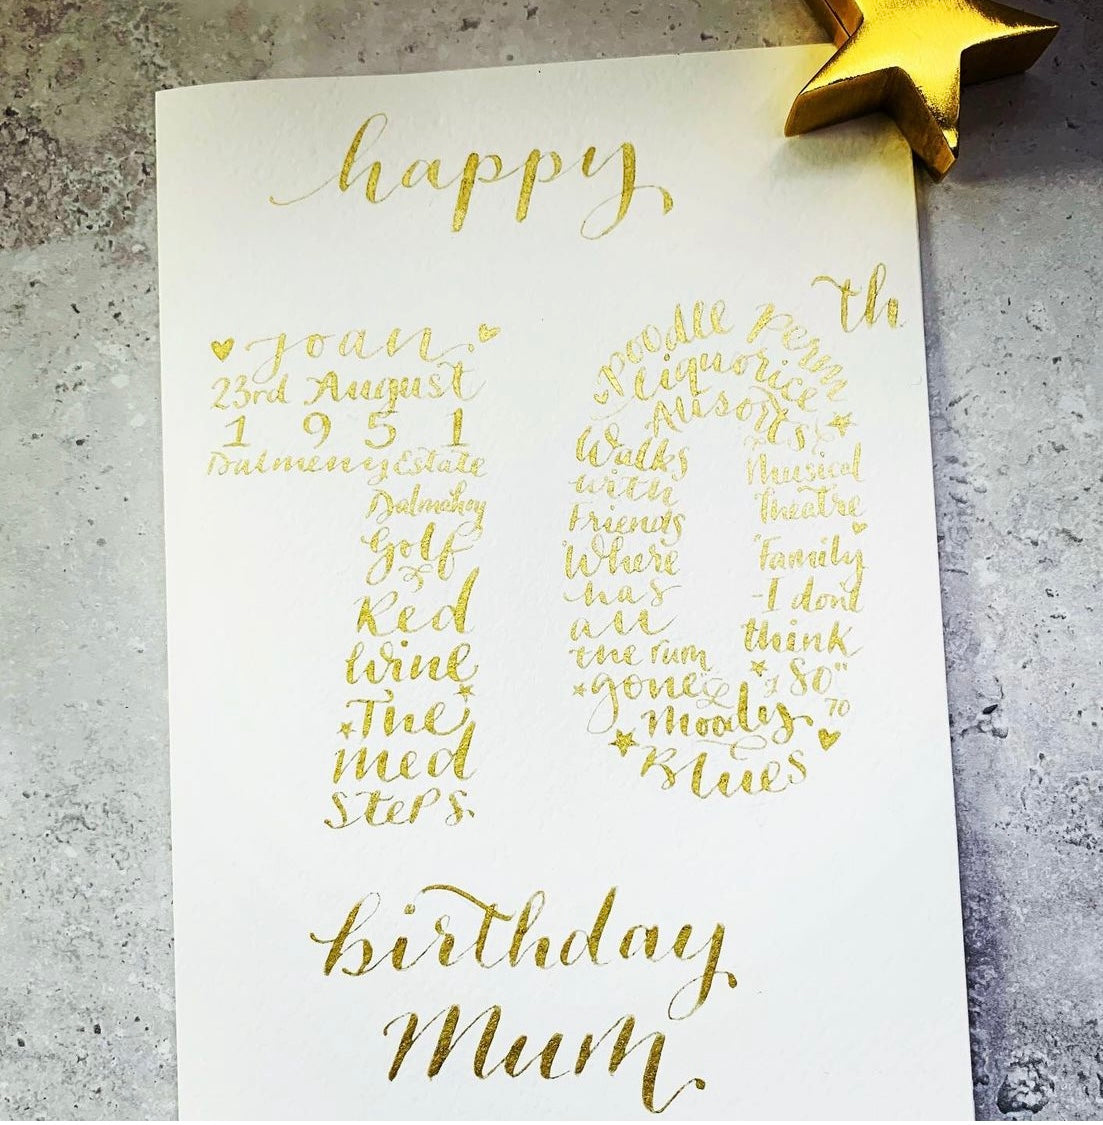 happy
th
Joan
23rd August
1951
Dalmeny Estate
Dalmahoy
Golf
&
Red
Wine
The
Med
Steps.
Poodle Perm
Liquorice
Allsorts
Walks
with
Friends
"Where
has
all
the rum
gone &
Moody
Blues
Musical
Theatre
"Family
-I dont
think
so"
70
birthday
Mum